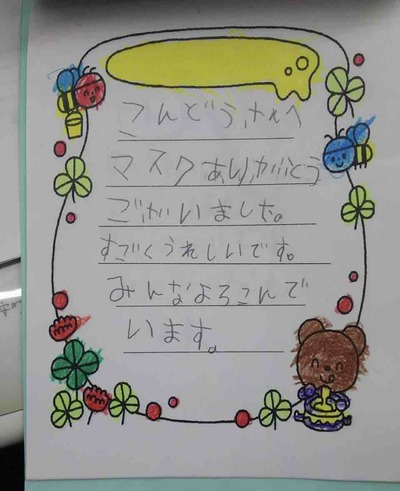 こんどうさんへ
マスクありがとう
ございました。
すごくうれしいです。
みんなよろこんで
います。